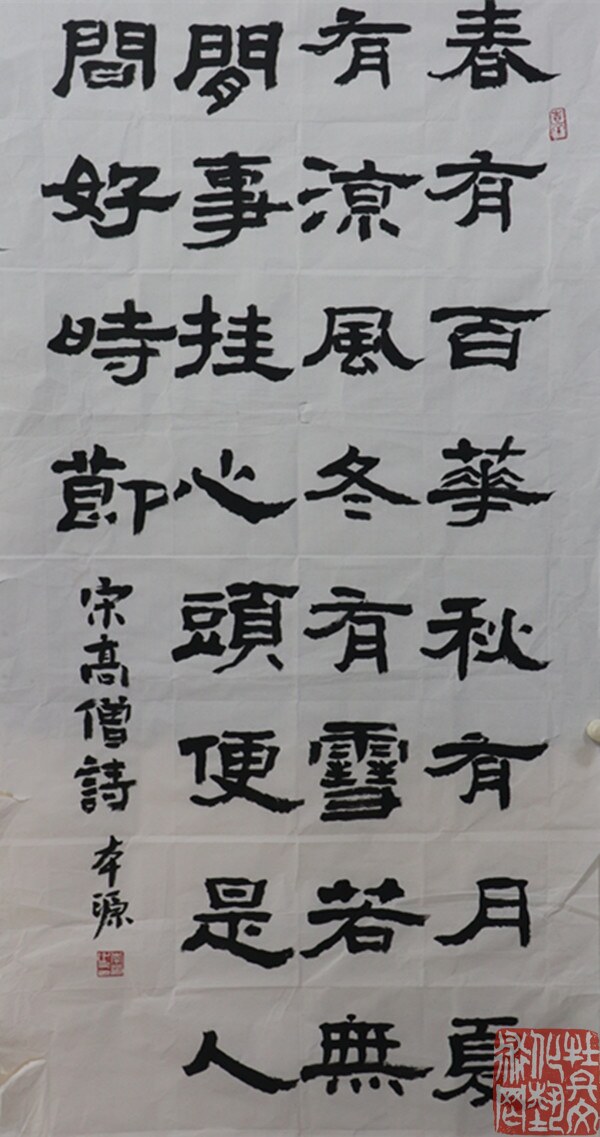 春有百華秋有月夏
有涼風冬有雪若無
閒事挂心頭便是人
間好時節
宋高僧詩
本源